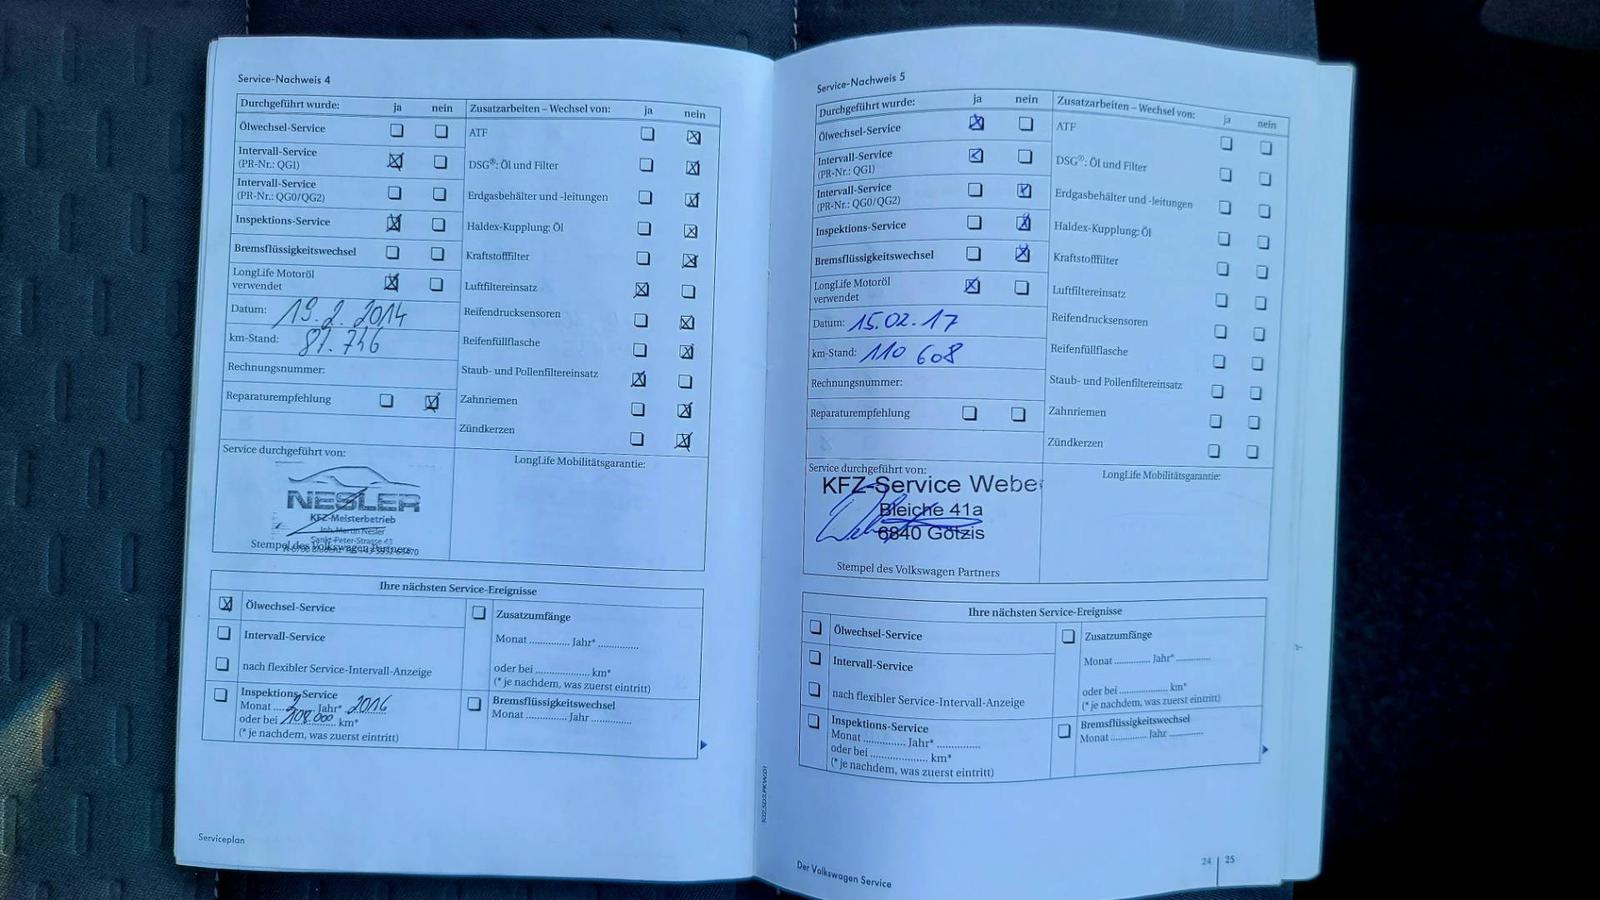 Service-Nachweis 4
Durchgeführt wurde: ja nein
Zusatzarbeiten – Wechsel von: ja nein
Ölwechsel-Service
ATF
Intervall-Service
(PR-Nr.: QG1)
DSG®: Öl und Filter
Intervall-Service
(PR-Nr.: QG0/QG2)
Erdgasbehälter und -leitungen
Inspektions-Service
Haldex-Kupplung: Öl
Bremsflüssigkeitswechsel
Kraftstofffilter
LongLife Motoröl
verwendet
Luftfiltereinsatz
Datum: 19.2.2014
Reifendrucksensoren
km-Stand: 81.746
Reifenfüllflasche
Rechnungsnummer:
Staub- und Pollenfiltereinsatz
Reparaturempfehlung
Zahnriemen
Zündkerzen
Service durchgeführt von:
LongLife Mobilitätsgarantie:
NESLER
KFZ-Meisterbetrieb
Inh. Martin Nesler
Sankt-Peter-Strasse
Stempel des Volkswagen Partners
Ihre nächsten Service-Ereignisse
Ölwechsel-Service
Zusatzumfänge
Intervall-Service
Monat .............. Jahr* ..............
nach flexibler Service-Intervall-Anzeige
oder bei .................. km*
(* je nachdem, was zuerst eintritt)
Inspektions-Service
Monat 2 Jahr* 2016
oder bei 108.000 km*
(* je nachdem, was zuerst eintritt)
Bremsflüssigkeitswechsel
Monat .............. Jahr ..............
Serviceplan
Service-Nachweis 5
Durchgeführt wurde: ja nein
Zusatzarbeiten – Wechsel von: ja nein
Ölwechsel-Service
ATF
Intervall-Service
(PR-Nr.: QG1)
DSG®: Öl und Filter
Intervall-Service
(PR-Nr.: QG0/QG2)
Erdgasbehälter und -leitungen
Inspektions-Service
Haldex-Kupplung: Öl
Bremsflüssigkeitswechsel
Kraftstofffilter
LongLife Motoröl
verwendet
Luftfiltereinsatz
Datum: 15.02.17
Reifendrucksensoren
km-Stand: 110 608
Reifenfüllflasche
Rechnungsnummer:
Staub- und Pollenfiltereinsatz
Reparaturempfehlung
Zahnriemen
Zündkerzen
Service durchgeführt von:
LongLife Mobilitätsgarantie:
KFZ-Service Weber
Bleiche 41a
6840 Götzis
Stempel des Volkswagen Partners
Ihre nächsten Service-Ereignisse
Ölwechsel-Service
Zusatzumfänge
Intervall-Service
Monat .............. Jahr* ..............
nach flexibler Service-Intervall-Anzeige
oder bei .................. km*
(* je nachdem, was zuerst eintritt)
Inspektions-Service
Monat .............. Jahr* ..............
oder bei .................. km*
(* je nachdem, was zuerst eintritt)
Bremsflüssigkeitswechsel
Monat .............. Jahr ..............
Der Volkswagen Service
24 | 25